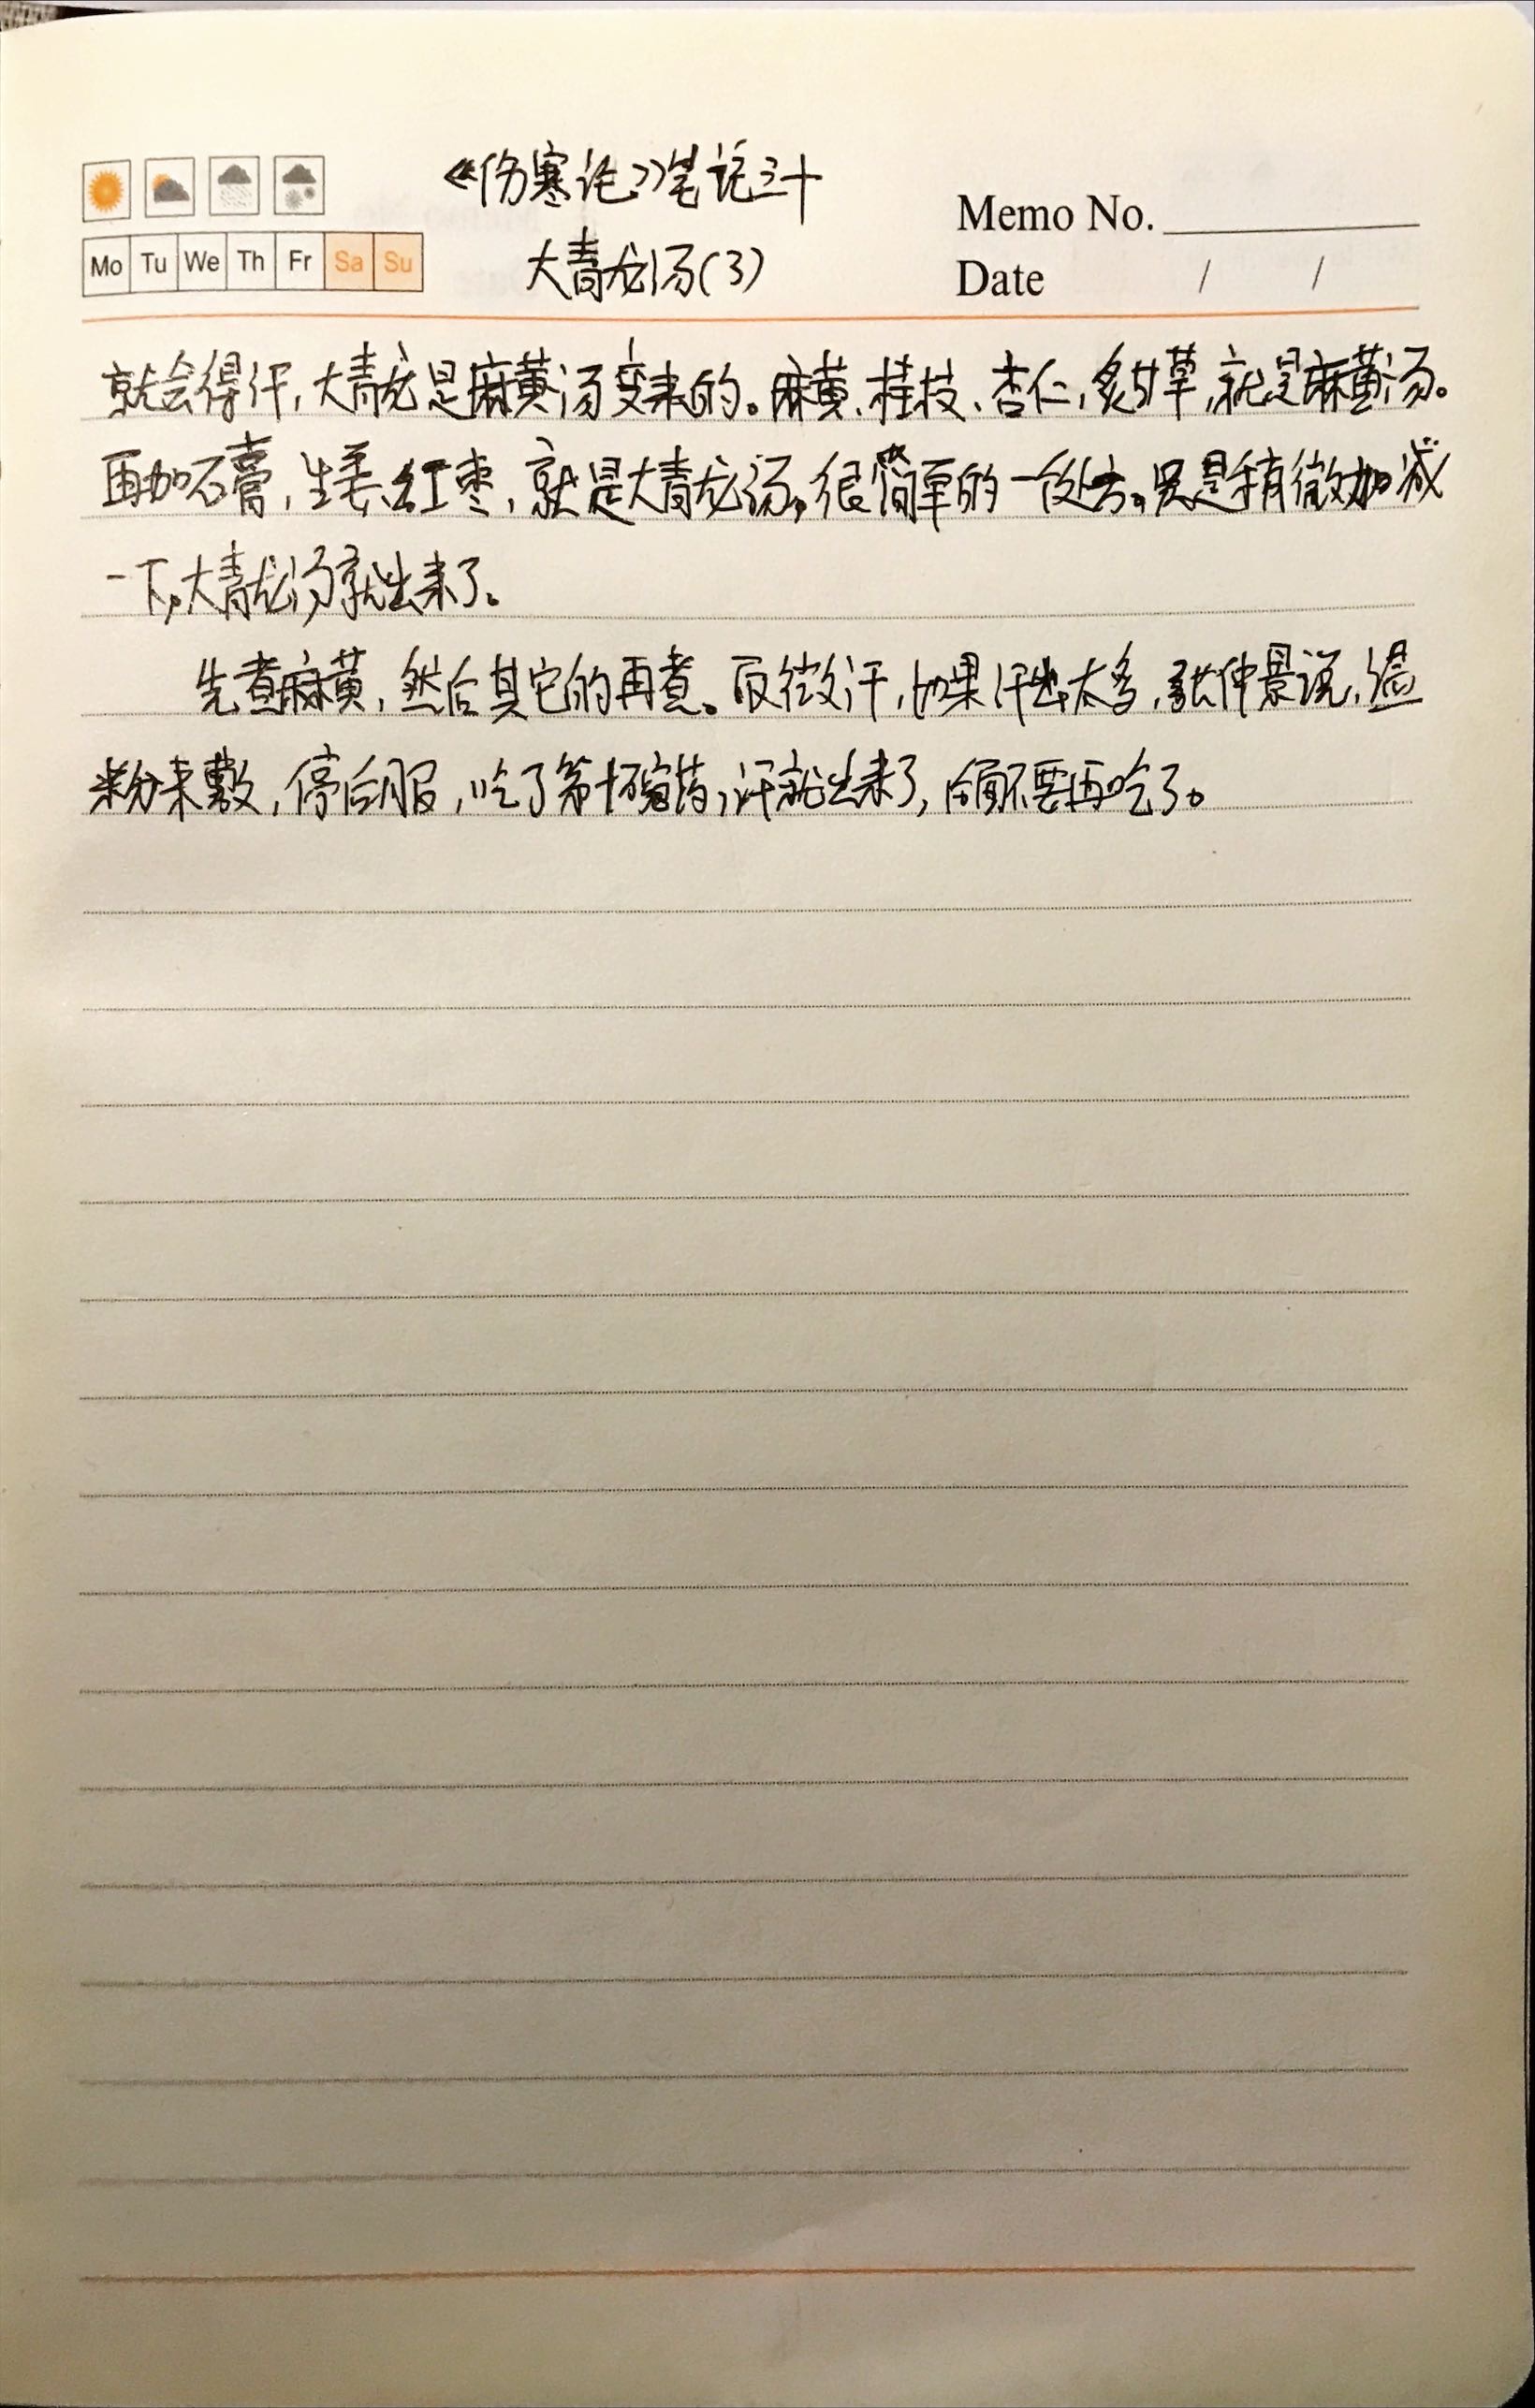 《伤寒论》笔记三十
大青龙汤(3)
Memo No.
Date / /
Mo Tu We Th Fr Sa Su
就会得汗,大青龙是麻黄汤变来的。麻黄、桂枝、杏仁,炙甘草,就是麻黄汤。
再加石膏,生姜、红枣,就是大青龙汤。很简单的一段处方。只是稍微加减
一下,大青龙汤就出来了。
先煮麻黄,然后其它的再煮。取微汗,如果汗出太多,张仲景说,温
粉来敷,停后服,吃了第一碗药,汗就出来了,后面不要再吃了。